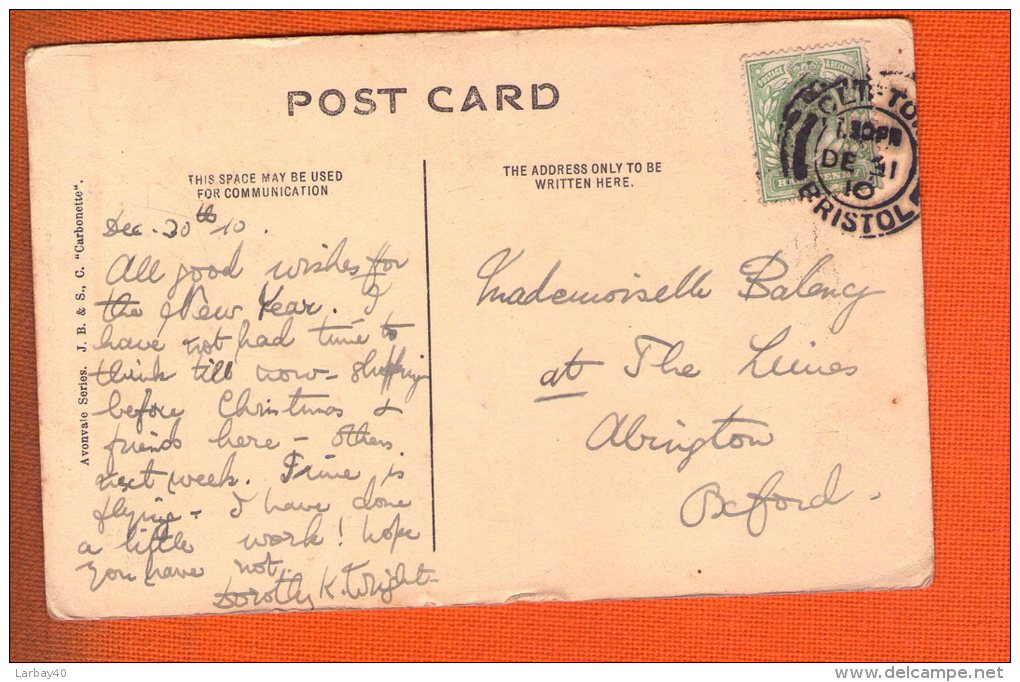 POST CARD
THIS SPACE MAY BE USED
FOR COMMUNICATION.
THE ADDRESS ONLY TO BE
WRITTEN HERE.
Avonvale Series. J. B. & S., C. "Carbonette".
Dec. 30th 10.
All good wishes for
the New Year. I
have not had time to
think till now - shopping
before Christmas &
friends here - others
next week. Time is
flying - I have done
a little work! hope
you have not.
Dorothy K. Wright
Mademoiselle Balency
at The Limes
Abington
Oxford.
POSTAGE & REVENUE
CLIFTON
DE 31
10
BRISTOL
Larbay40
www.delcampe.net